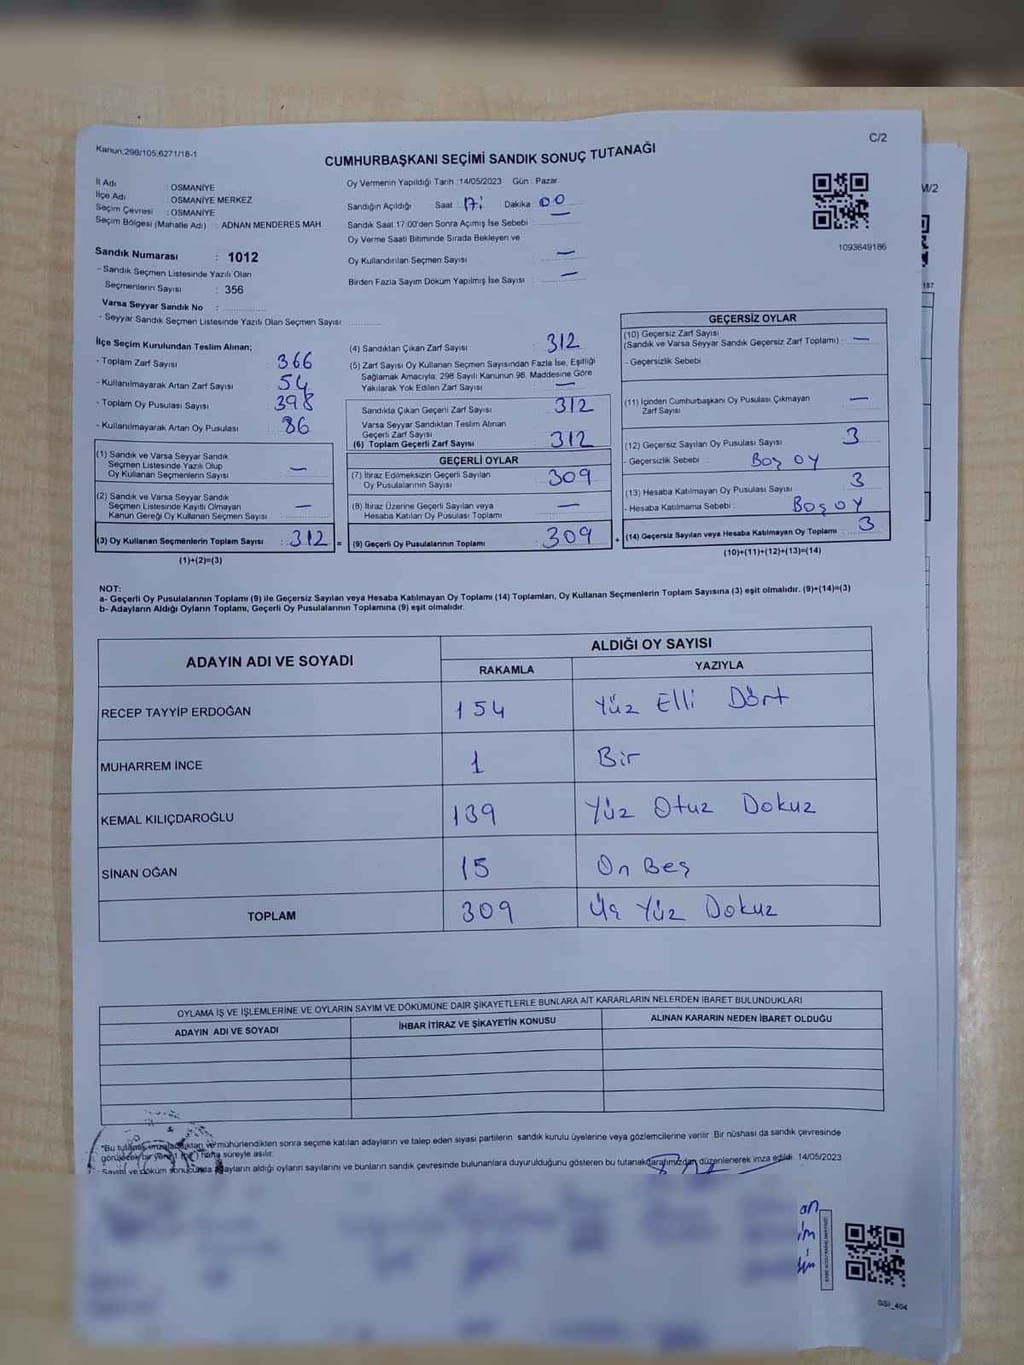 Kanun:298/105;6271/18-1
C/2
CUMHURBAŞKANI SEÇİMİ SANDIK SONUÇ TUTANAĞI
M/2
İl Adı : OSMANİYE
İlçe Adı : OSMANİYE MERKEZ
Seçim Çevresi : OSMANİYE
Seçim Bölgesi (Mahalle Adı) : ADNAN MENDERES MAH
Oy Vermenin Yapıldığı Tarih :14/05/2023 Gün : Pazar
Sandığın Açıldığı Saat : 17: Dakika : 00
Sandık Saat 17:00'den Sonra Açımış İse Sebebi : —
Oy Verme Saati Bitiminde Sırada Bekleyen ve
Oy Kullandırılan Seçmen Sayısı : —
Birden Fazla Sayım Döküm Yapılmış İse Sayısı : —
1093649186
187
Sandık Numarası : 1012
- Sandık Seçmen Listesinde Yazılı Olan
Seçmenlerin Sayısı : 356
Varsa Seyyar Sandık No :
- Seyyar Sandık Seçmen Listesinde Yazılı Olan Seçmen Sayısı :
İlçe Seçim Kurulundan Teslim Alınan;
- Toplam Zarf Sayısı : 366
- Kullanılmayarak Artan Zarf Sayısı : 54
- Toplam Oy Pusulası Sayısı : 398
- Kullanılmayarak Artan Oy Pusulası : 86
(1) Sandık ve Varsa Seyyar Sandık
Seçmen Listesinde Yazılı Olup
Oy Kullanan Seçmenlerin Sayısı : —
(2) Sandık ve Varsa Seyyar Sandık
Seçmen Listesinde Kayıtlı Olmayan
Kanun Gereği Oy Kullanan Seçmen Sayısı : —
(3) Oy Kullanan Seçmenlerin Toplam Sayısı : 312 =
(1)+(2)=(3)
(4) Sandıktan Çıkan Zarf Sayısı : 312
(5) Zarf Sayısı Oy Kullanan Seçmen Sayısından Fazla İse, Eşitliği
Sağlamak Amacıyla, 298 Sayılı Kanunun 98. Maddesine Göre
Yakılarak Yok Edilen Zarf Sayısı : —
Sandıkta Çıkan Geçerli Zarf Sayısı : 312
Varsa Seyyar Sandıktan Teslim Alınan
Geçerli Zarf Sayısı :
(6) Toplam Geçerli Zarf Sayısı : 312
GEÇERLİ OYLAR
(7) İtiraz Edilmeksizin Geçerli Sayılan
Oy Pusulalarının Sayısı : 309
(8) İtiraz Üzerine Geçerli Sayılan veya
Hesaba Katılan Oy Pusulası Toplamı : —
(9) Geçerli Oy Pusulalarının Toplamı : 309 +
GEÇERSİZ OYLAR
(10) Geçersiz Zarf Sayısı
(Sandık ve Varsa Seyyar Sandık Geçersiz Zarf Toplamı) : —
- Geçersizlik Sebebi
(11) İçinden Cumhurbaşkanı Oy Pusulası Çıkmayan
Zarf Sayısı : —
(12) Geçersiz Sayılan Oy Pusulası Sayısı : 3
- Geçersizlik Sebebi : Boş oy
(13) Hesaba Katılmayan Oy Pusulası Sayısı : 3
- Hesaba Katılmama Sebebi : Boş oy
(14) Geçersiz Sayılan veya Hesaba Katılmayan Oy Toplamı : 3
(10)+(11)+(12)+(13)=(14)
NOT:
a- Geçerli Oy Pusulalarının Toplamı (9) ile Geçersiz Sayılan veya Hesaba Katılmayan Oy Toplamı (14) Toplamları, Oy Kullanan Seçmenlerin Toplam Sayısına (3) eşit olmalıdır. (9)+(14)=(3)
b- Adayların Aldığı Oyların Toplamı, Geçerli Oy Pusulalarının Toplamına (9) eşit olmalıdır.
ADAYIN ADI VE SOYADI
ALDIĞI OY SAYISI
RAKAMLA YAZIYLA
RECEP TAYYİP ERDOĞAN 154 Yüz Elli Dört
MUHARREM İNCE 1 Bir
KEMAL KILIÇDAROĞLU 139 Yüz Otuz Dokuz
SİNAN OĞAN 15 On Beş
TOPLAM 309 Üç Yüz Dokuz
OYLAMA İŞ VE İŞLEMLERİNE VE OYLARIN SAYIM VE DÖKÜMÜNE DAİR ŞİKAYETLERLE BUNLARA AİT KARARLARIN NELERDEN İBARET BULUNDUKLARI
ADAYIN ADI VE SOYADI İHBAR İTİRAZ VE ŞİKAYETİN KONUSU ALINAN KARARIN NEDEN İBARET OLDUĞU
"Bu tutanak ve mühürlendikten sonra seçime katılan adayların ve talep eden siyasi partilerin sandık kurulu üyelerine veya gözlemcilerine verilir. Bir nüshası da sandık çevresinde
görülecek bir yere 1 hafta süreyle asılır.
Sayım ve döküm sonucunda adayların aldığı oyların sayılarını ve bunların sandık çevresinde bulunanlara duyurulduğunu gösteren bu tutanak tarafımızdan düzenlenerek imza edildi. 14/05/2023
an
im
GSI_404